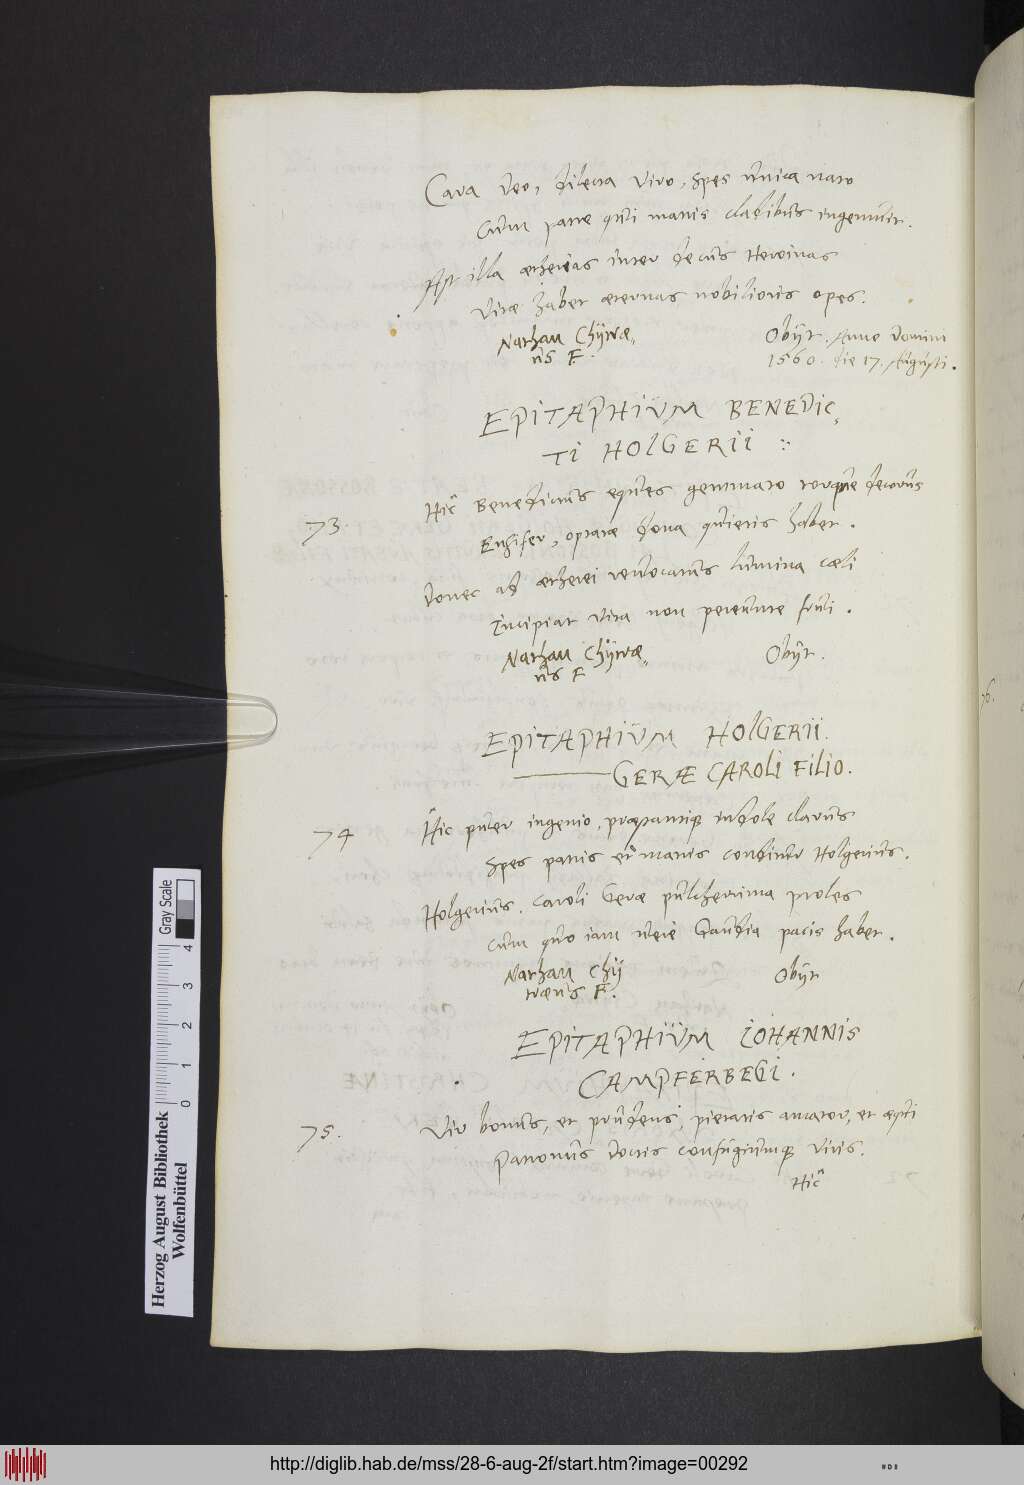 Cara Deo, dilecta viro, spes unica nato
Cum patre qui matris cladibus ingemuit.
Ast illa æthereias inter decus Heroinas
Vitæ habet æternas nobilioris opes.
Nathan Chÿtræ,
us F.
Obÿt. Anno Domini
1560. die 17. Augusti.
EPITAPHIUM BENEDIC,
TI HOLGERII
73.
Hic Benedictus eques gemmato torque decorus
Ensifer, optatæ dona quietis habet.
Donec ad ætherei revocatus lumina cœli
Incipiat vita non pereunte frui.
Nathan Chÿtræ,
us F
Obÿt.
EPITAPHIUM HOLGERII.
GERÆ CAROLI FILIO.
74
Hic puer ingenio, præstantique indole clarus
Spes patris et matris conditur Holgerius.
Holgerius. Caroli Geræ pulcherrima proles
Cum quo iam veræ Gaudia pacis habet.
Nathan Chÿ
træus F.
Obÿt
EPITAPHIUM IOHANNIS
CAMPFERBEGI.
75.
Vir bonus, et prudens, pietatis amator, et æqui
Patronus doctis confugiumque viris.
Hic
76.
Herzog August Bibliothek
Wolfenbüttel
0 1 2 3 4
Gray Scale
http://diglib.hab.de/mss/28-6-aug-2f/start.htm?image=00292